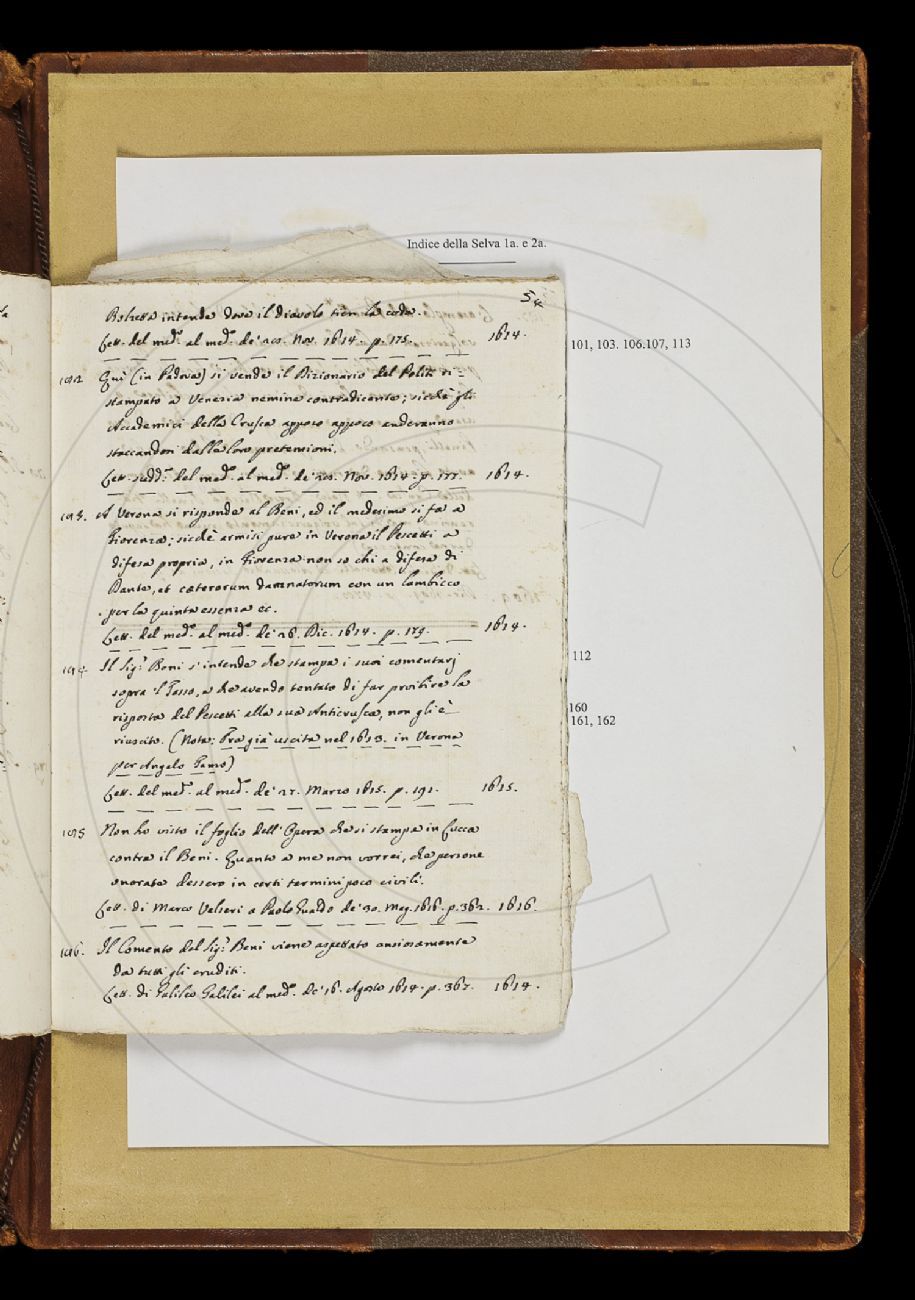 Indice della Selva 1a. e 2a.
5
intende dove il diavolo tien la coda.
Lett. del med.º al med.º de' 20. Nov. 1614. p. 175. 1614.
101, 103. 106.107, 113
192 Quì (in Padova) si vende il Dizionario del Politi ri-
stampato a Venezia nemine contradicente; sicchè gli
Accademici della Crusca appoco appoco anderanno
staccandosi dalla loro pretensioni.
Lett. sudd.ª del med.º al med.º de' 20. Nov. 1614. p. 177. 1614.
193. A Verona si risponde al Beni, ed il medesimo si fa a
Fiorenza; sicchè armisi pure in Verona il Pescetti a
difesa propria, in Fiorenza non so chi a difesa di
Dante, et cæterorum damnatorum con un lambicco
per la quinta essenza ec.
Lett. del med.º al med.º de' 26. Dic. 1614. p. 179. 1614.
194 Il Sig.r Beni s'intende che stampa i suoi comentarj
sopra 'l Tasso, e che avendo tentato di far proibire la
risposta del Pescetti alla sua Anticrusca, non gli è
riuscito. (Nota: Era già uscita nel 1613. in Verona
per Angelo Tamo)
Lett. del med.º al med.º de' 27. Marzo 1615. p. 191. 1615.
112
160
161, 162
195 Non ho visto il foglio dell' Opera che si stampa in Lucca
contra il Beni. Quanto a me non vorrei, che persone
onorate dessero in certi termini poco civili.
Lett. di Marco Velseri a Paolo Gualdo de' 30. Mag. 1616. p. 362. 1616.
196. Il Comento del Sig.r Beni viene aspettato ansiosamente
da tutti gli eruditi.
Lett. di Galileo Galilei al med.º de' 16. Agosto 1614. p. 367. 1614.